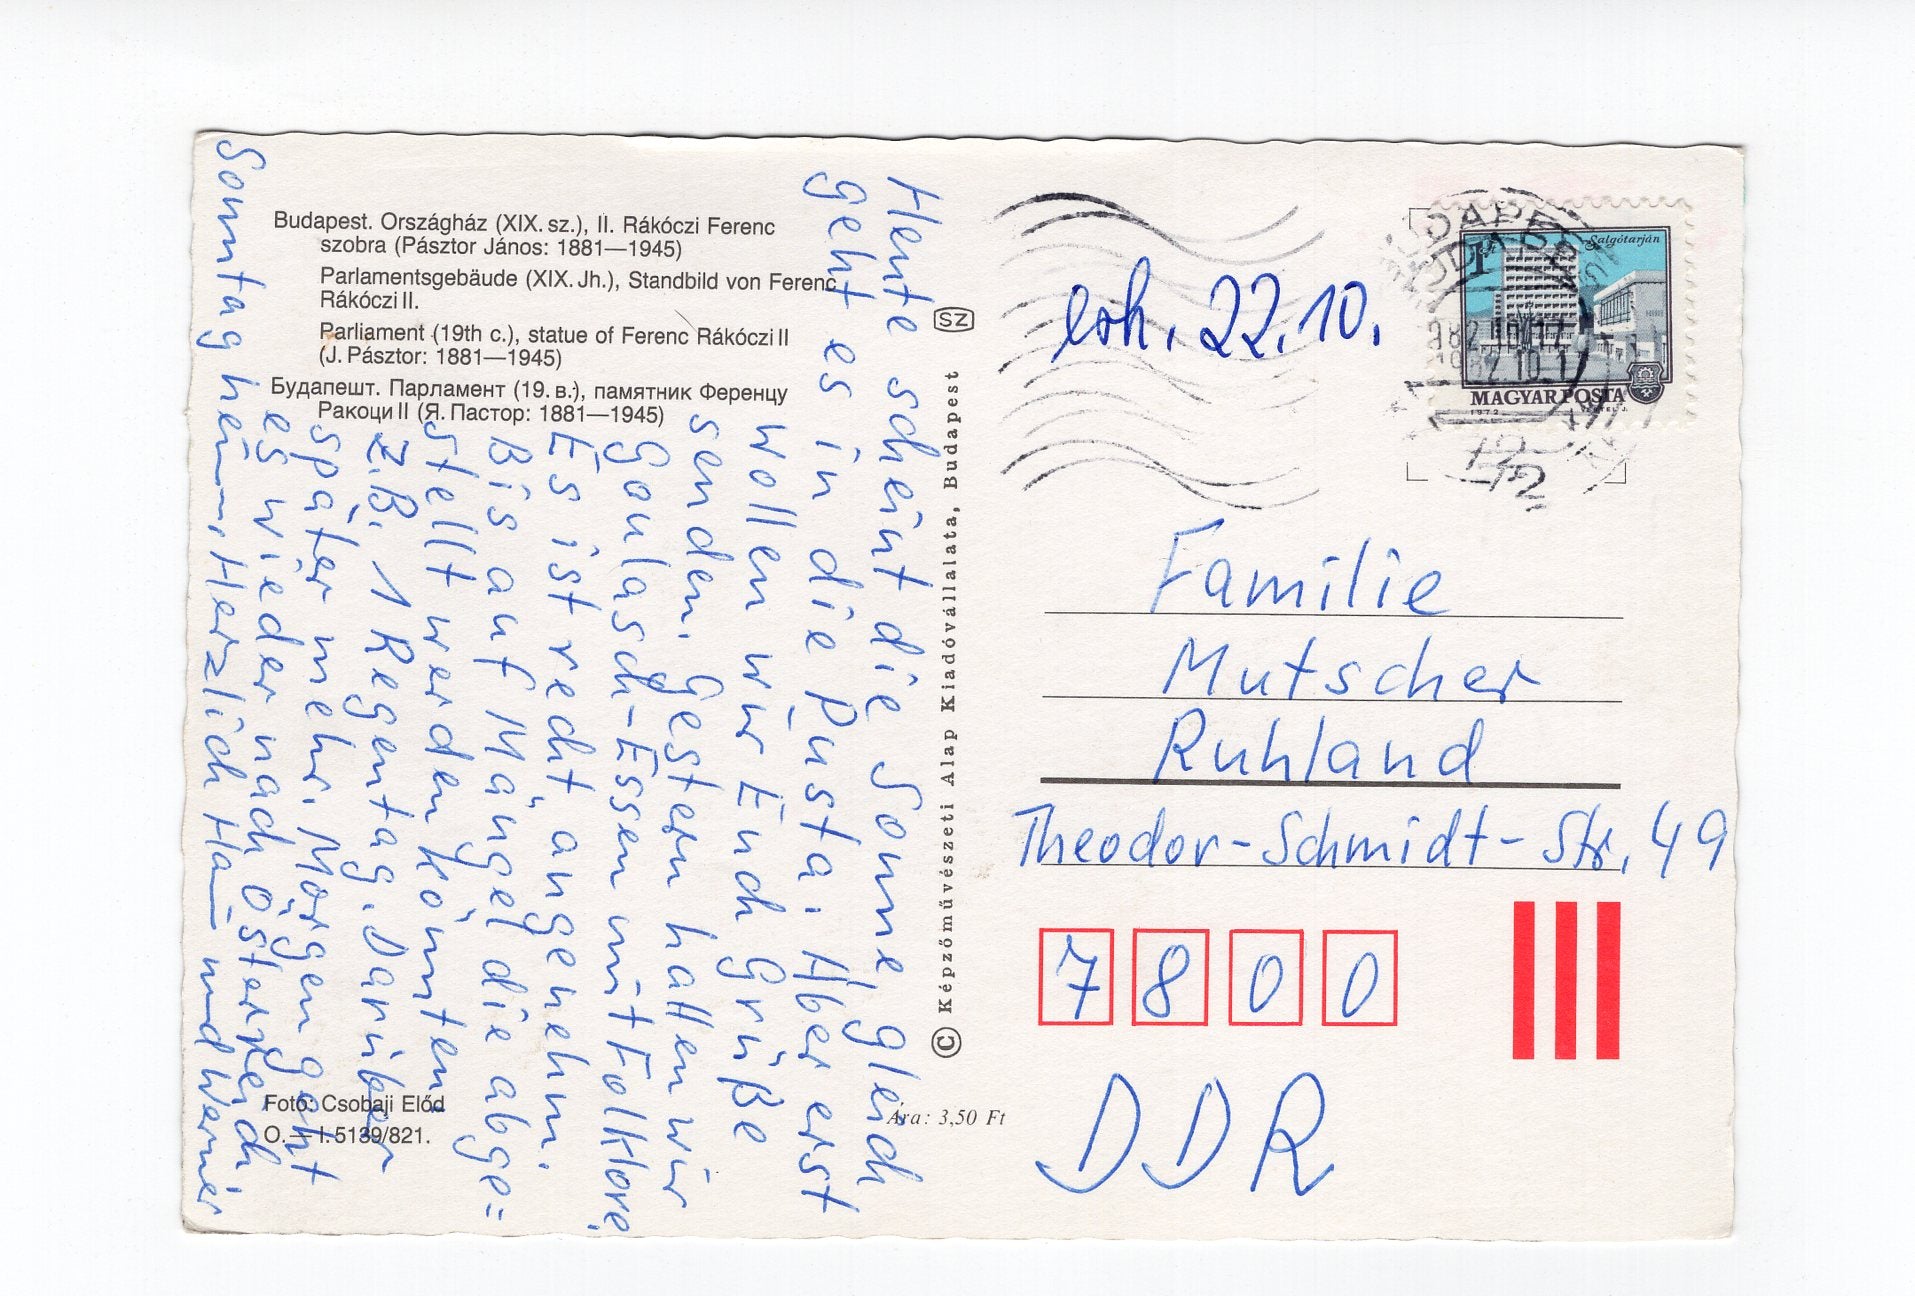 Budapest. Országház (XIX. sz.), II. Rákóczi Ferenc
szobra (Pásztor János: 1881—1945)
Parlamentsgebäude (XIX. Jh.), Standbild von Ferenc
Rákóczi II.
Parliament (19th c.), statue of Ferenc Rákóczi II
(J. Pásztor: 1881—1945)
Будапешт. Парламент (19. в.), памятник Ференцу
Ракоци II (Я. Пастор: 1881—1945)
Heute scheint die Sonne, gleich
geht es in die Pusta. Aber erst
wollen wir Euch Grüße
senden. Gestern hatten wir
Goulasch-Essen mit Folklore.
Es ist recht angenehm.
Bis auf Mängel die abge=
stellt werden könnten
z.B. 1 Regentag. Darüber
später mehr. Morgen geht
es wieder nach Österreich
Sonntag heim. Herzlich und Werner
Foto: Csobaji Előd
O.—I. 5139/821.
Ára: 3,50 Ft
SZ
© Képzőművészeti Alap Kiadóvállalata, Budapest
erh. 22.10.
BUDAPEST
1982.10.17
1 Ft
Salgótarján
MAGYAR POSTA
1973
Familie
Mutscher
Ruhland
Theodor-Schmidt-Str. 49
7800
DDR